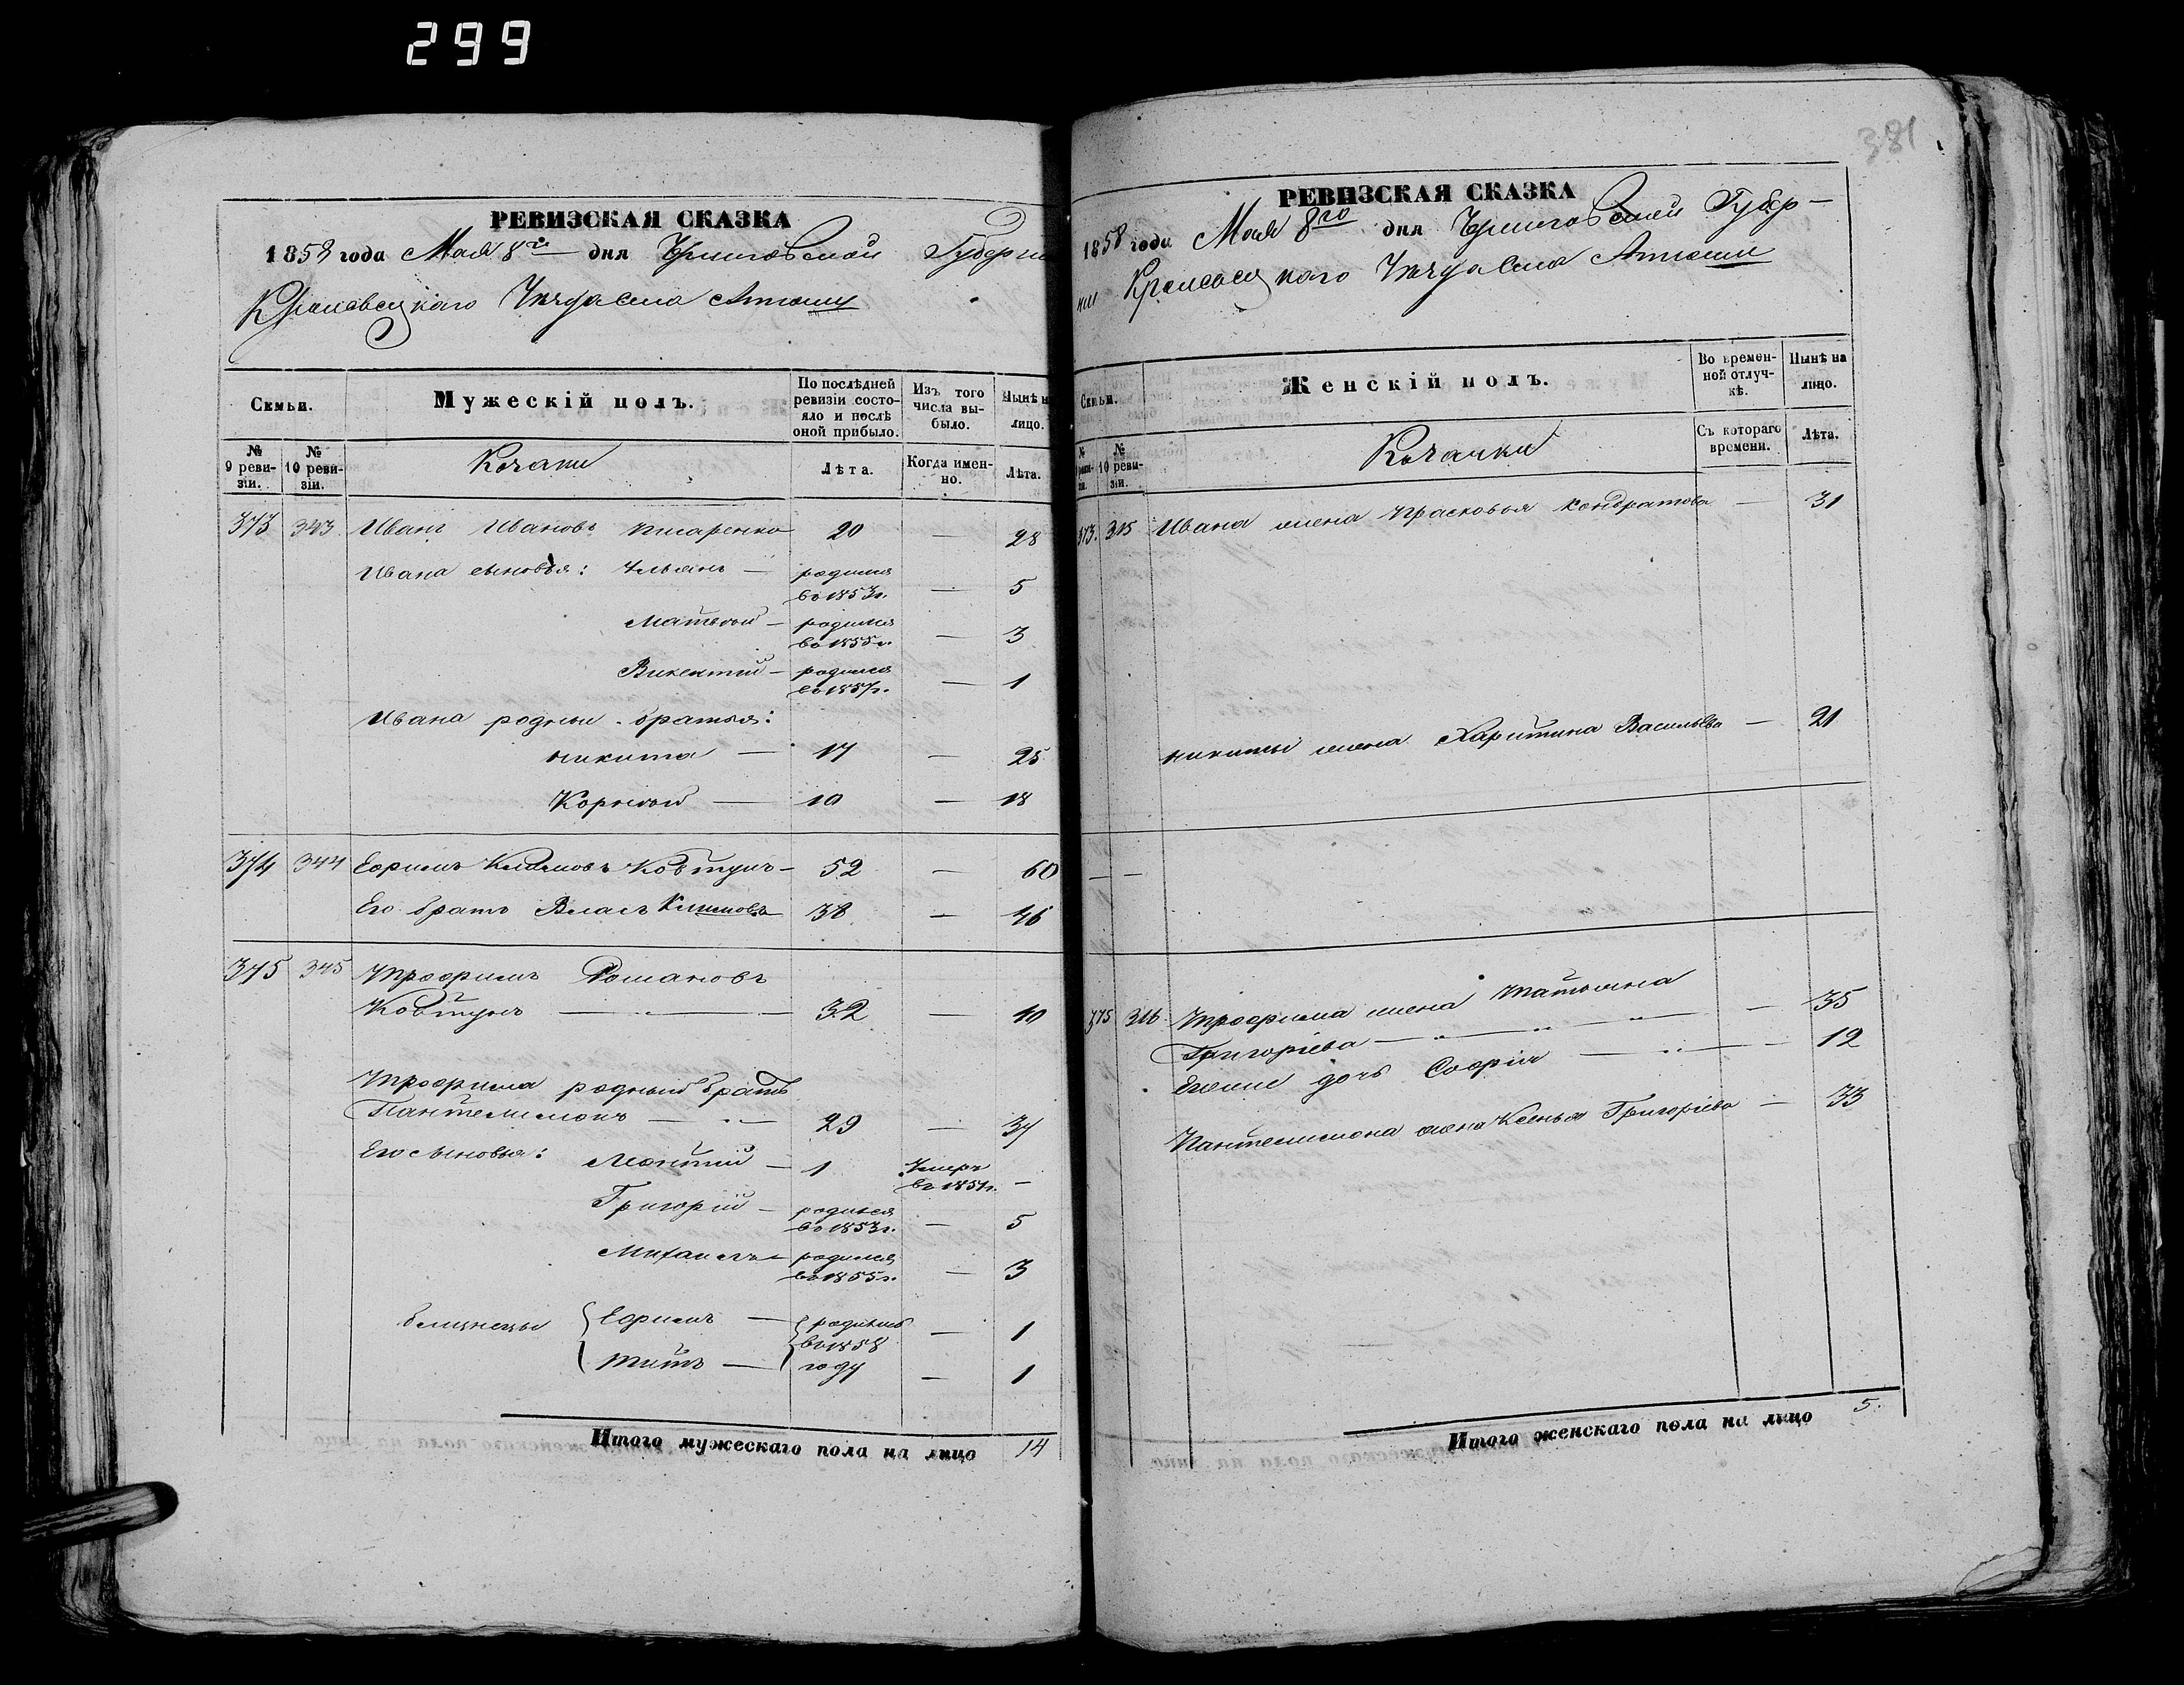 299
РЕВИЗСКАЯ СКАЗКА
1858 года Мая 8го дня Черниговской Губерніи
Кролевецкаго Уезда Села Атюши
Семьи.
Мужескій полъ.
По послѣдней ревизіи состояло и послѣ оной прибыло.
Изъ того числа выбыло.
Нынѣ на лицо.
№ 9 ревизіи.
№ 10 ревизіи.
Козаки
Лѣта.
Когда именно.
Лѣта.
373 343 Иванъ Ивановъ Писаренко 20 — 28
Ивана сыновья: Ульянъ — родился въ 1853г. — 5
Матвѣй — родился въ 1855г. — 3
Викентій — родился въ 1857г. — 1
Ивана родные братья:
Никита — 17 — 25
Корнѣй — 10 — 18
374 344 Ефимъ Климовъ Ковтунъ — 52 — 60
Его братъ Власъ Климовъ 38 — 46
375 345 Трофимъ Романовъ
Ковтунъ — 32 — 40
Трофима родный братъ
Пантелимонъ — 29 — 37
Его сыновья: Леонтій — 1 Умеръ въ 1851г. —
Григорій — родился въ 1853г. — 5
Михаилъ — родился въ 1855г. — 3
близнецы { Ефимъ — { родились — 1
въ 1858
Титъ — году — 1
Итого мужескаго пола на лицо 14
381
РЕВИЗСКАЯ СКАЗКА
1858 года Мая 8го дня Черниговской Губер-
ніи Кролевецкаго Уезда Села Атюши
Семьи.
Женскій полъ.
Во временной отлучкѣ.
Нынѣ на лицо.
№ 9 ревизіи.
№ 10 ревизіи.
Козачки
Съ котораго времени.
Лѣта.
373. 315 Ивана жена Прасковья Кондратова — 31
Никиты жена Харитина Васильева — 21
— —
375 316 Трофима жена Татьяна
Григоріева — 35
Его же дочь Софія — 12
Пантелимона жена Ксенья Григоріева — 33
Итого женскаго пола на лицо 5.